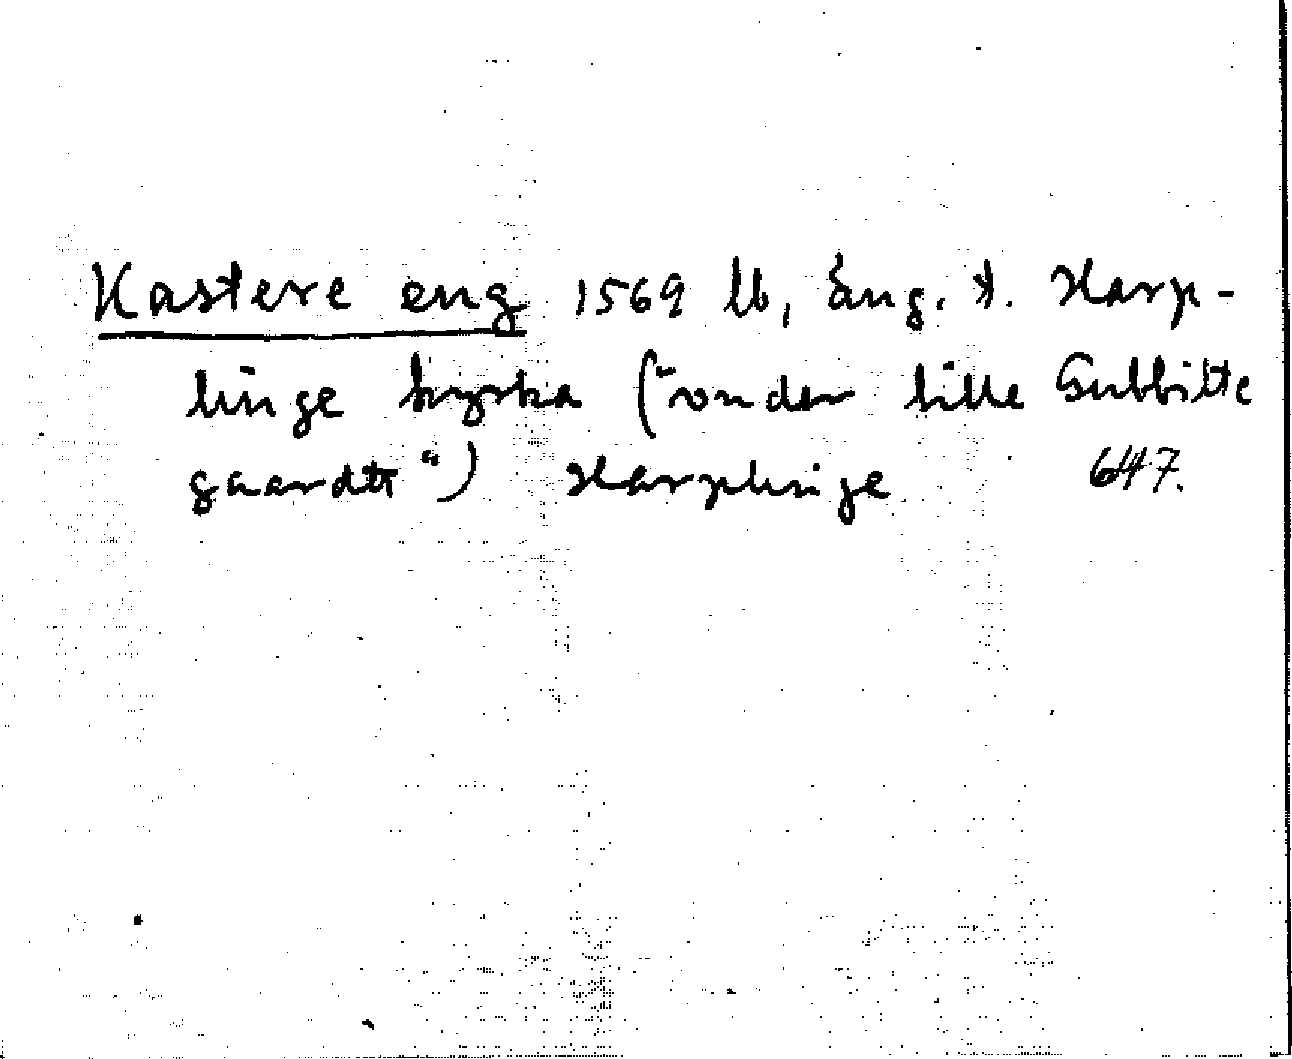 Kastere eng 1569 lb, äng. t. Harp-
linge kyrka ("vnder lille Gubbitte
gaardtt") Harplinge 647.